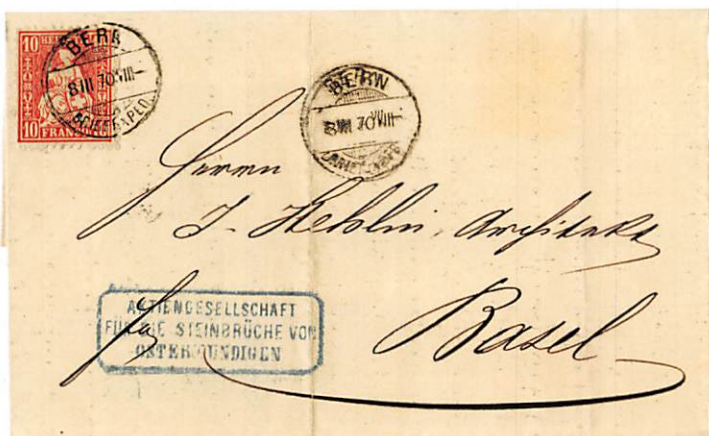 10 HE
10 FRANCO
BERN
8 III 70 VIII
BRIEFEXPED
BERN
8 III 70 VIII
Herrn
J. Kehlin, Architekt
Basel
AKTIENGESELLSCHAFT
FÜR DIE STEINBRÜCHE VON
OSTERMUNDIGEN